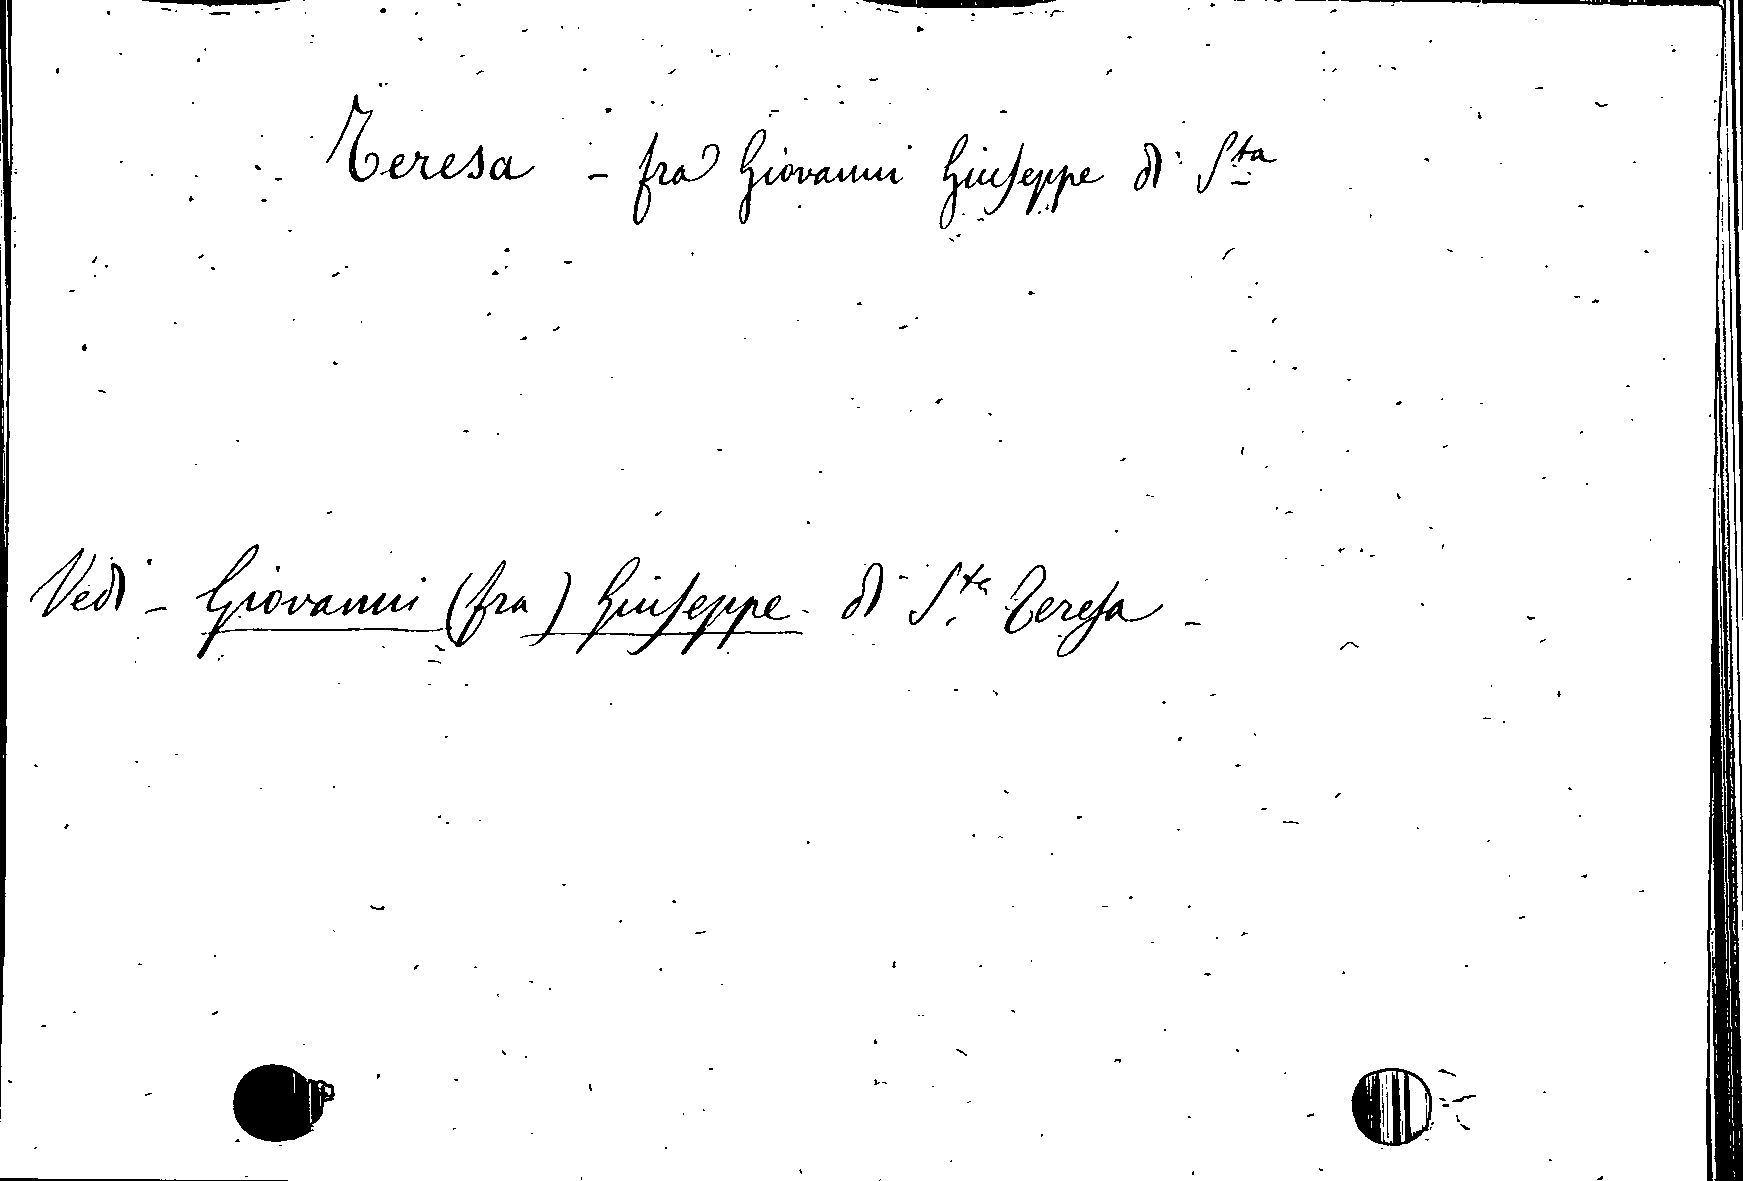 Teresa - fra Giovanni Giuseppe di Sta
Vedi - Giovanni (fra) Giuseppe di Sta Teresa -